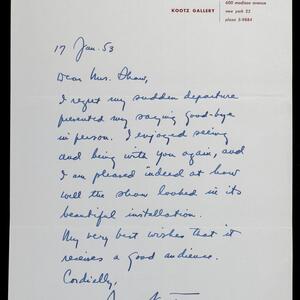 KOOTZ GALLERY
600 madison avenue
new york 22
plaza 5-9884
17 Jan. 53
Dear Mrs. Shaw,
I regret my sudden departure
prevented my saying good-bye
in person. I enjoyed seeing
and being with you again, and
I am pleased indeed at how
well the show looked in its
beautiful installation.
My very best wishes that it
receives a good audience.
Cordially,